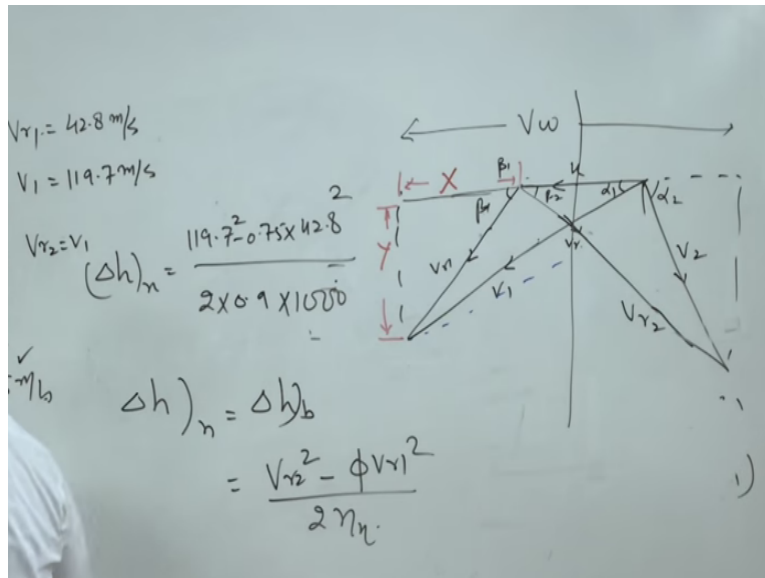 Vr1 = 42.8 m/s
V1 = 119.7 m/s
Vr2 = V1
(Δh)n = 119.7² - 0.75 x 42.8²
2 x 0.9 x 1000
m/s
Δh)n = Δh)b
= Vr2² - ϕ Vr1²
2 ηn.
Vw
X
β1
u
α1
α2
β2
β1
Y
Vr1
V1
Vr
V2
Vr2
1)